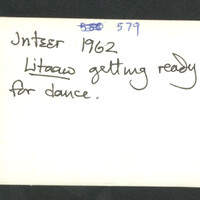 579
Jnteer 1962
Litaaw getting ready
for dance.